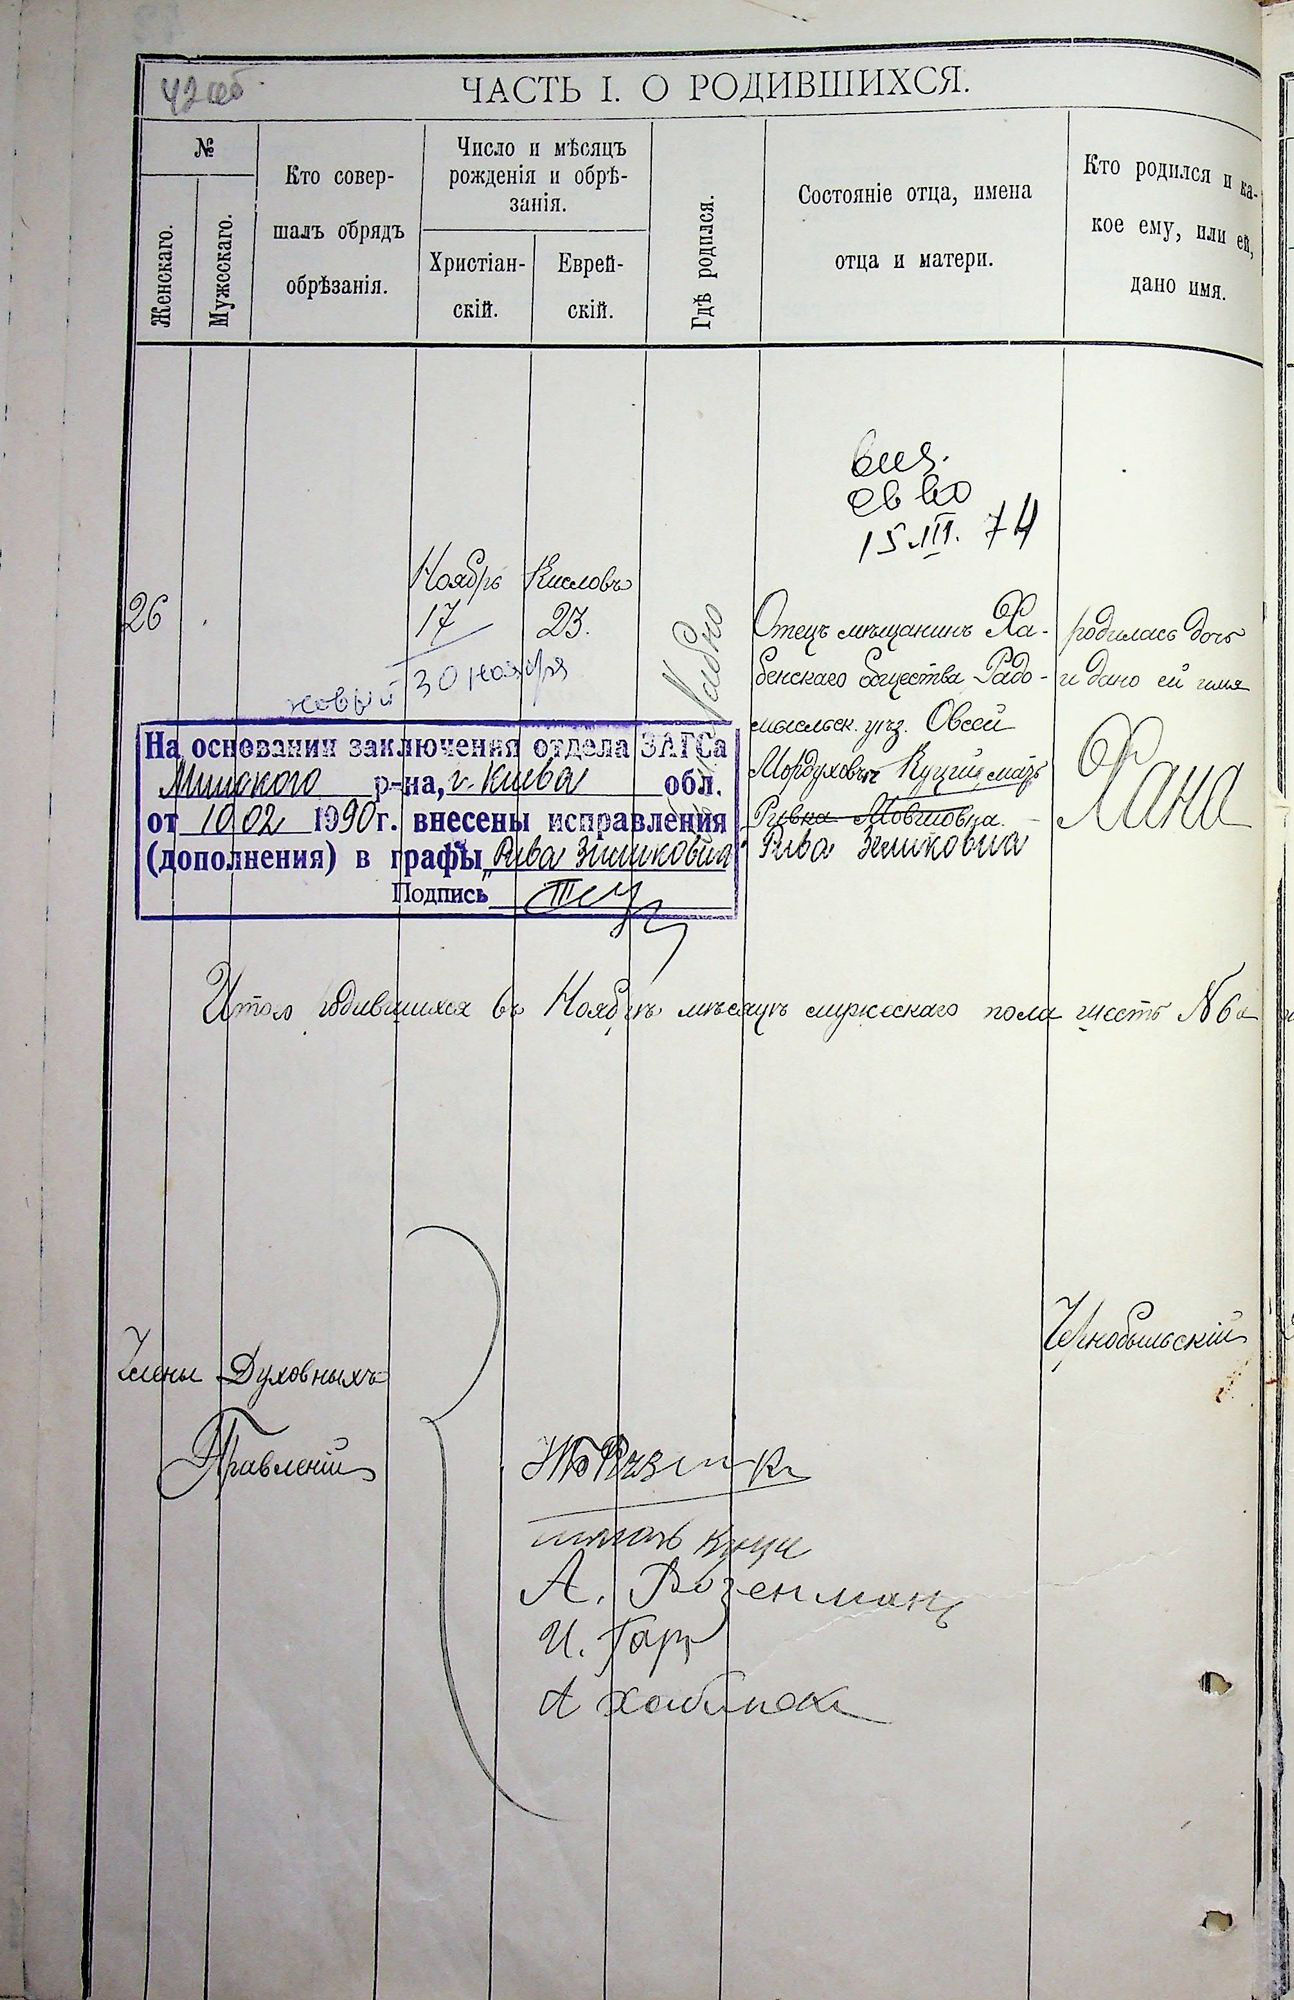 42об.
ЧАСТЬ I. О РОДИВШИХСЯ.
№
Женскаго.
Мужескаго.
Кто совер-
шалъ обрядъ
обрѣзанія.
Число и мѣсяцъ
рожденія и обрѣ-
занія.
Христіан-
скій.
Еврей-
скій.
Гдѣ родился.
Состояніе отца, имена
отца и матери.
Кто родился и ка-
кое ему, или ей,
дано имя.
св во
15.III.74
26
Ноябрь
17
новый 30 ноября
Кисловъ
23.
Отецъ мѣщанинъ Ха-
бенскаго общества Радо-
мысльск. уѣз. Овсей
Мордуховъ Куций, мать
Ривка Мовшовна.
Рива Зеликовна
родилась дочь
и дано ей имя
Хана
На основании заключения отдела ЗАГСа
Минского р-на, г. Киева обл.
от 10 02 1990г. внесены исправления
(дополнения) в графы „Рива Зиликовна“
Подпись
Итого родившихся въ Ноябрѣ мѣсяцѣ мужескаго пола шесть №6
Чернобыльскій
Члены Духовныхъ
Правленій
А. Розенманъ
И. Гарц